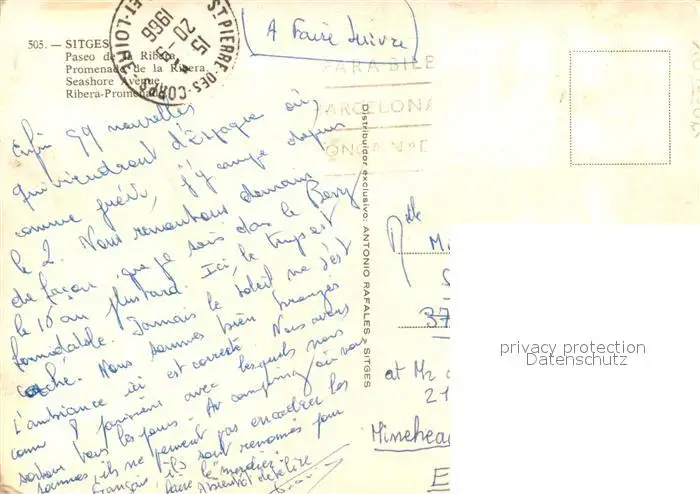 505. — SITGES
Paseo de la Ribera
Promenade de la Ribera.
Seashore Avenue
Ribera-Promenade
ST PIERRE-DES-CORPS
15
20 - 9
1966
ET-LOIRE
A Faire Suivre
PARA BIE
BARCELONA
Distribuidor exclusivo: ANTONIO RAFALES - SITGES
Enfin qq nouvelles
qui viendront d'Espagne où,
comme prévu, j'y campe depuis
le 2. Nous remontons demain
de façon que je sois dans le Berry
le 15 au plus tard. Ici, le temps est
formidable. Jamais le soleil ne s'est
caché. Nous sommes bien bronzés
L'ambiance ici est correcte. Nous avons
connu 8 parisiens avec lesquels nous
sortons tous les jours. Au camping où nous
sommes, ils ne peuvent pas encadrer les
Français, ils sont renommés pour
faire le
Mlle
M.
37
at Mr
21
Minehea
E
privacy protection
Datenschutz